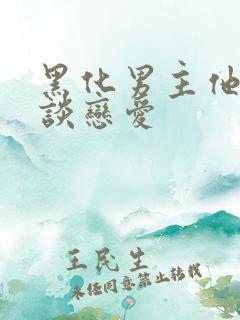 黑化男主他
談戀愛
王民生
未经同意禁止转载